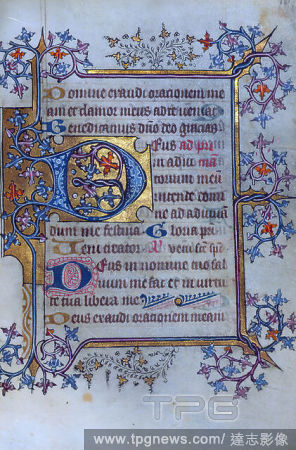 Domine exaudi orationem me
am et clamor meus ad te veniat
Benedicamus dño deo gracias
Deus
in adiu
torium meū
intende domi
ne ad adiuvā
dum me festina Gloria pa
Veni creator
Deus in nomine tuo sal
vum me fac et in virtu
te tua libera me
Deus exaudi orationem meam
TPG
www.tpgnews.com / 達志影像